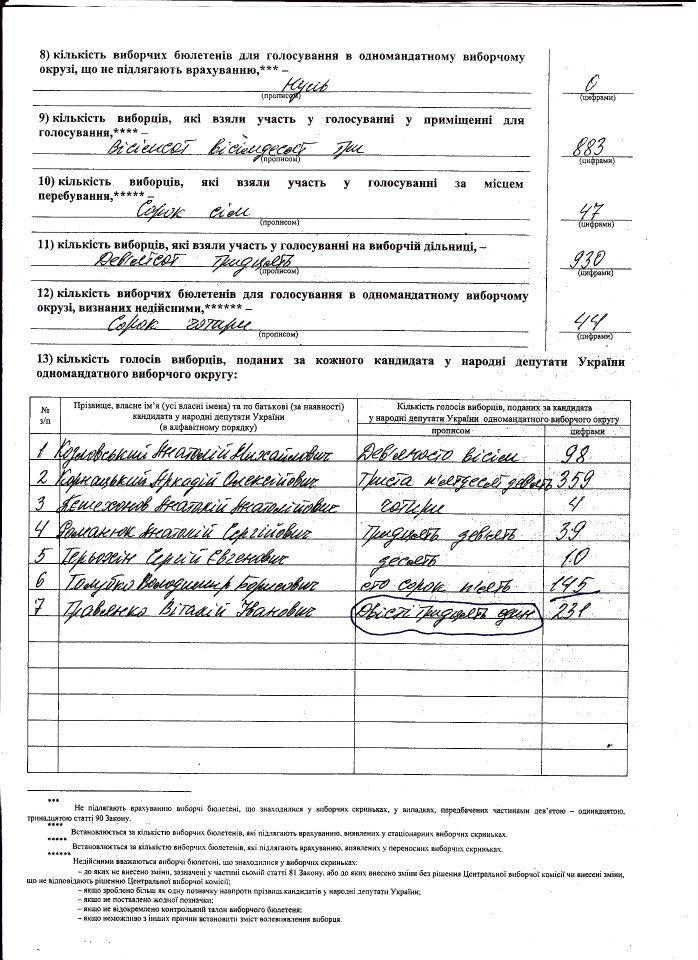 8) кількість виборчих бюлетенів для голосування в одномандатному виборчому
окрузі, що не підлягають врахуванню,*** –
Нуль 0
(прописом) (цифрами)
9) кількість виборців, які взяли участь у голосуванні у приміщенні для
голосування,**** –
Вісімсот вісімдесят три 883
(прописом) (цифрами)
10) кількість виборців, які взяли участь у голосуванні за місцем
перебування,***** –
Сорок сім 47
(прописом) (цифрами)
11) кількість виборців, які взяли участь у голосуванні на виборчій дільниці, –
Дев'ятсот тридцять 930
(прописом) (цифрами)
12) кількість виборчих бюлетенів для голосування в одномандатному виборчому
окрузі, визнаних недійсними,****** –
Сорок чотири 44
(прописом) (цифрами)
13) кількість голосів виборців, поданих за кожного кандидата у народні депутати України
одномандатного виборчого округу:
№ з/п
Прізвище, власне ім'я (усі власні імена) та по батькові (за наявності)
кандидата у народні депутати України
(в алфавітному порядку)
Кількість голосів виборців, поданих за кандидата
у народні депутати України одномандатного виборчого округу
прописом цифрами
1 Козловський Анатолій Михайлович Дев'яносто вісім 98
2 Корнацький Аркадій Олексійович Триста п'ятдесят девять 359
3 Анатолій Анатолійович чотири 4
4 Романюк Анатолій Сергійович Тридцять девять 39
5 Терьохін Сергій Євгенович десять 10
6 Володимир Борисович сто сорок п'ять 145
7 Травянко Віталій Іванович Двісті тридцять один 231
***
Не підлягають врахуванню виборчі бюлетені, що знаходилися у виборчих скриньках, у випадках, передбачених частинами дев'ятою – одинадцятою,
тринадцятою статті 90 Закону.
****
Встановлюється за кількістю виборчих бюлетенів, які підлягають врахуванню, виявлених у стаціонарних виборчих скриньках.
*****
Встановлюється за кількістю виборчих бюлетенів, які підлягають врахуванню, виявлених у переносних виборчих скриньках.
******
Недійсними вважаються виборчі бюлетені, що знаходилися у виборчих скриньках:
– до яких не внесено зміни, зазначені у частині сьомій статті 81 Закону, або до яких внесено зміни без рішення Центральної виборчої комісії чи внесені зміни,
що не відповідають рішенню Центральної виборчої комісії;
– якщо зроблено більш як одну позначку навпроти прізвищ кандидатів у народні депутати України;
– якщо не поставлено жодної позначки;
– якщо не відокремлено контрольний талон виборчого бюлетеня;
– якщо неможливо з інших причин встановити зміст волевиявлення виборця.